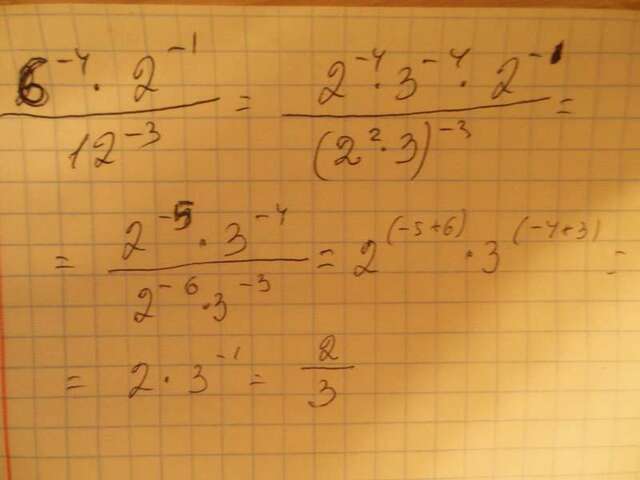 (6^{-4} · 2^{-1}) / 12^{-3} = (2^{-4} · 3^{-4} · 2^{-1}) / (2^2 · 3)^{-3} =
= (2^{-5} · 3^{-4}) / (2^{-6} · 3^{-3}) = 2^{(-5+6)} · 3^{(-4+3)} =
= 2 · 3^{-1} = 2/3